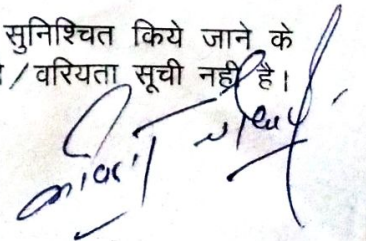 सुनिश्चित किये जाने के
/ वरियता सूची नही है।